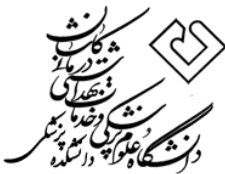 دانشگاه علوم پزشکی و خدمات
بهداشتی درمانی کاشان
دانشکده پزشکی